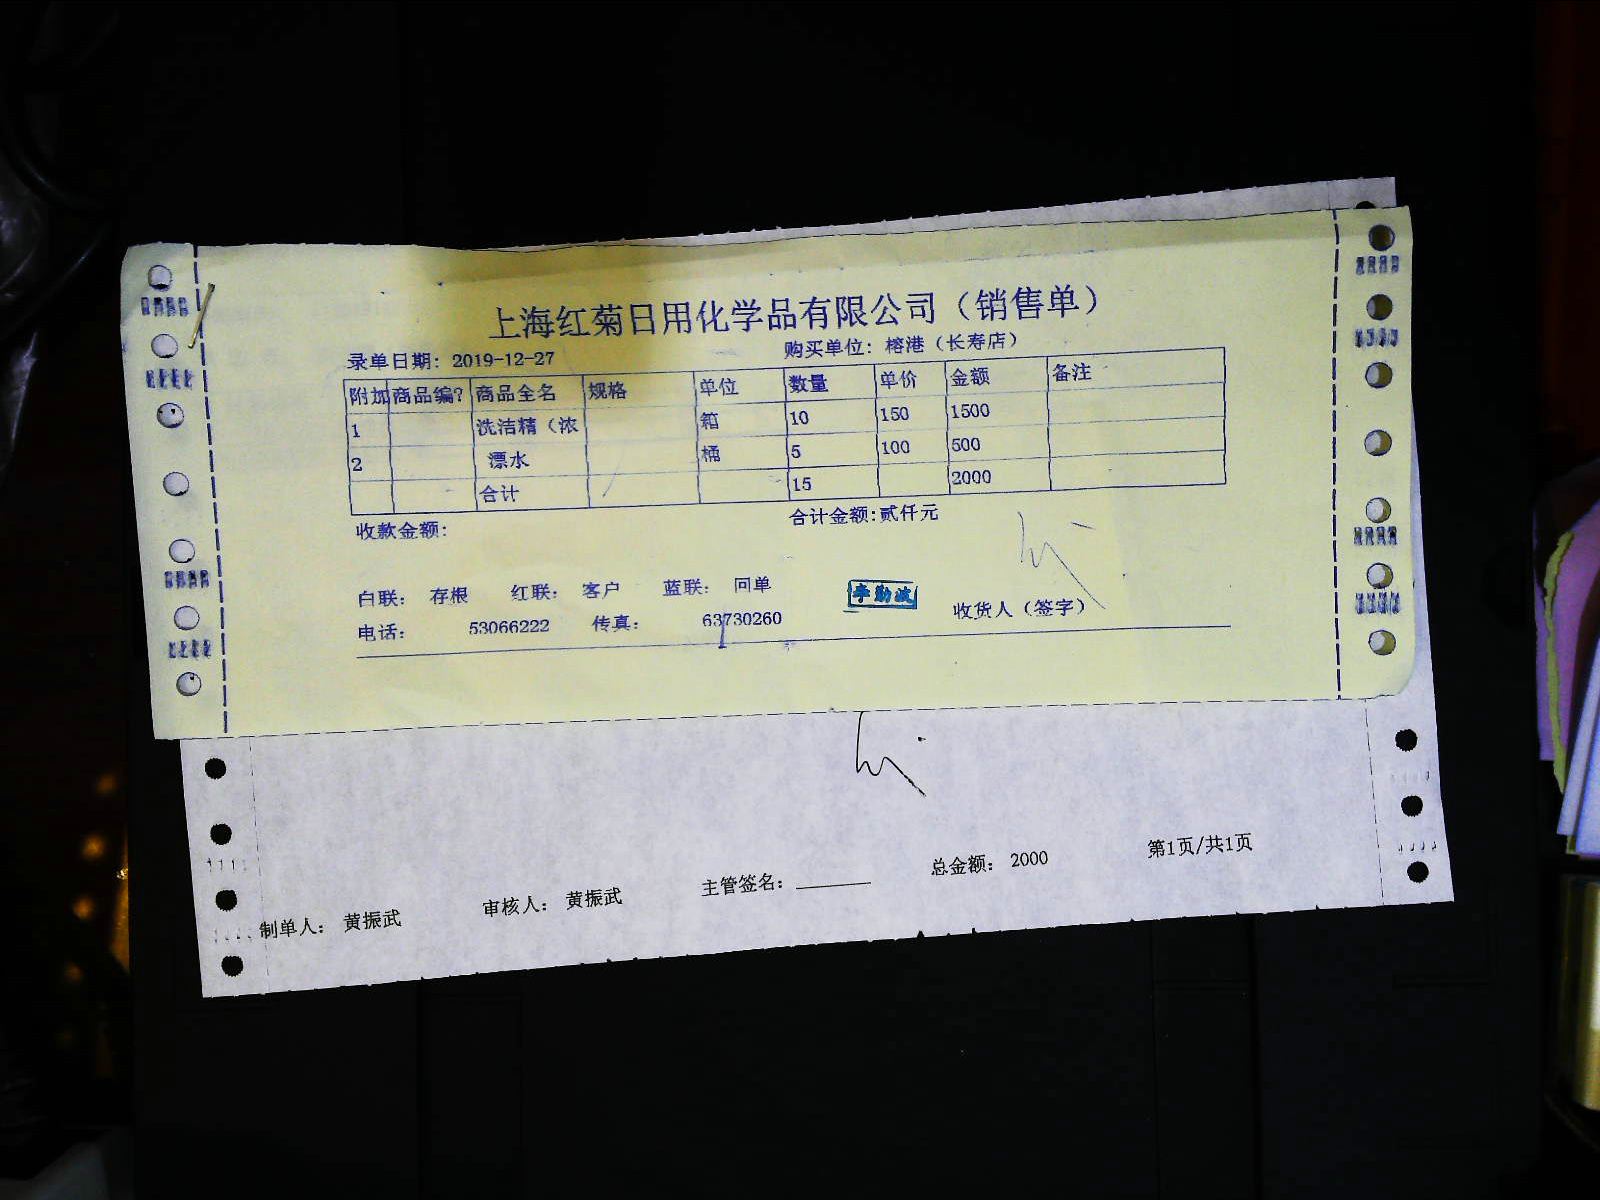 上海红菊日用化学品有限公司（销售单）
录单日期: 2019-12-27 购买单位: 榕港（长寿店）
附加 商品编? 商品全名 规格 单位 数量 单价 金额 备注
1 洗洁精（浓 箱 10 150 1500
2 漂水 桶 5 100 500
合计 15 2000
收款金额: 合计金额:贰仟元
白联: 存根 红联: 客户 蓝联: 回单 收货人（签字）
电话: 53066222 传真: 63730260
制单人: 黄振武 审核人: 黄振武 主管签名: 总金额: 2000 第1页/共1页